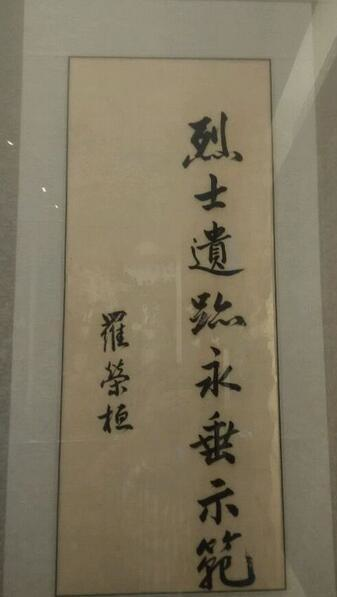 烈士遺跡永垂示範
羅榮桓